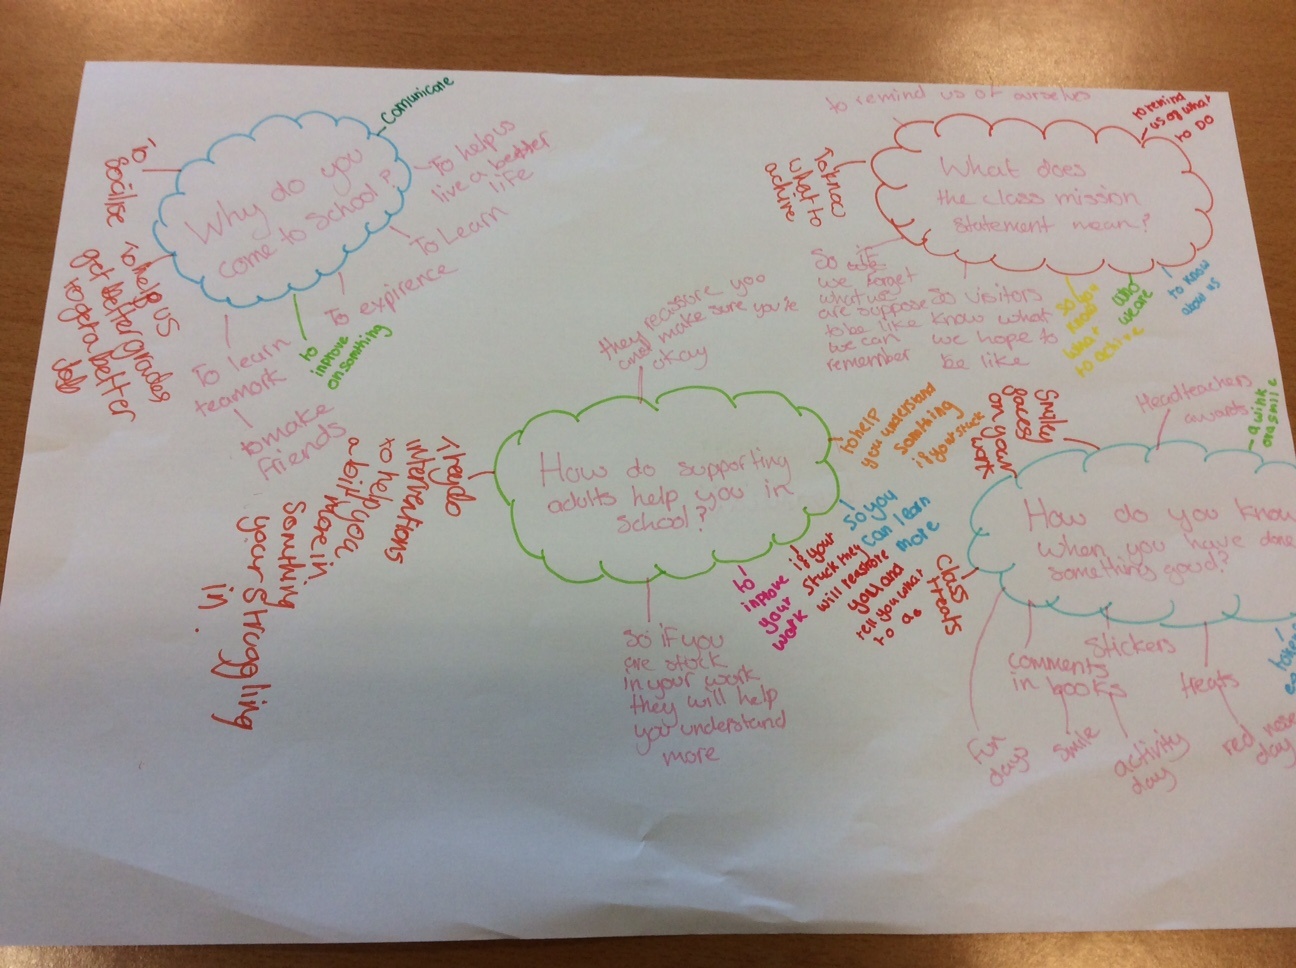 Why do you
come to School?
Comunicate
To help us
live a better
life
To Learn
To expirence
to
inprove
on somthing
To learn
teamork
to make
friends
To help us
get better grades
to get a better
Job
To
Socilise
What does
the class mission
statement mean?
to remind us of ourselves
to remind
us of what
to DO
To know
what to
achive
So if
we forget
what we
are suppose
to be like
we can
remember
So visitors
know what
we hope to
be like
so you
know
what
to achive
who
we are
to know
abow us
How do supporting
adults help you in
school?
they reassure you
and make sure you're
okay
to help
you understand
somthing
if your stuck
so you
can learn
more
if your
stuck they
will reashore
you and
tell you what
to do
to
inprove
your
work
so if you
are stuck
in your work
they will help
you understand
more
They do
interventions
to help you
a bit more in
Somthing
your struggling
in.
How do you know
when you have done
something good?
Smiley
faces
on your
work
Headteachers
awards
a wink
or a smile
class
treats
fun
days
comments
in books
smile
Stickers
activity
day
treats
red nose
day